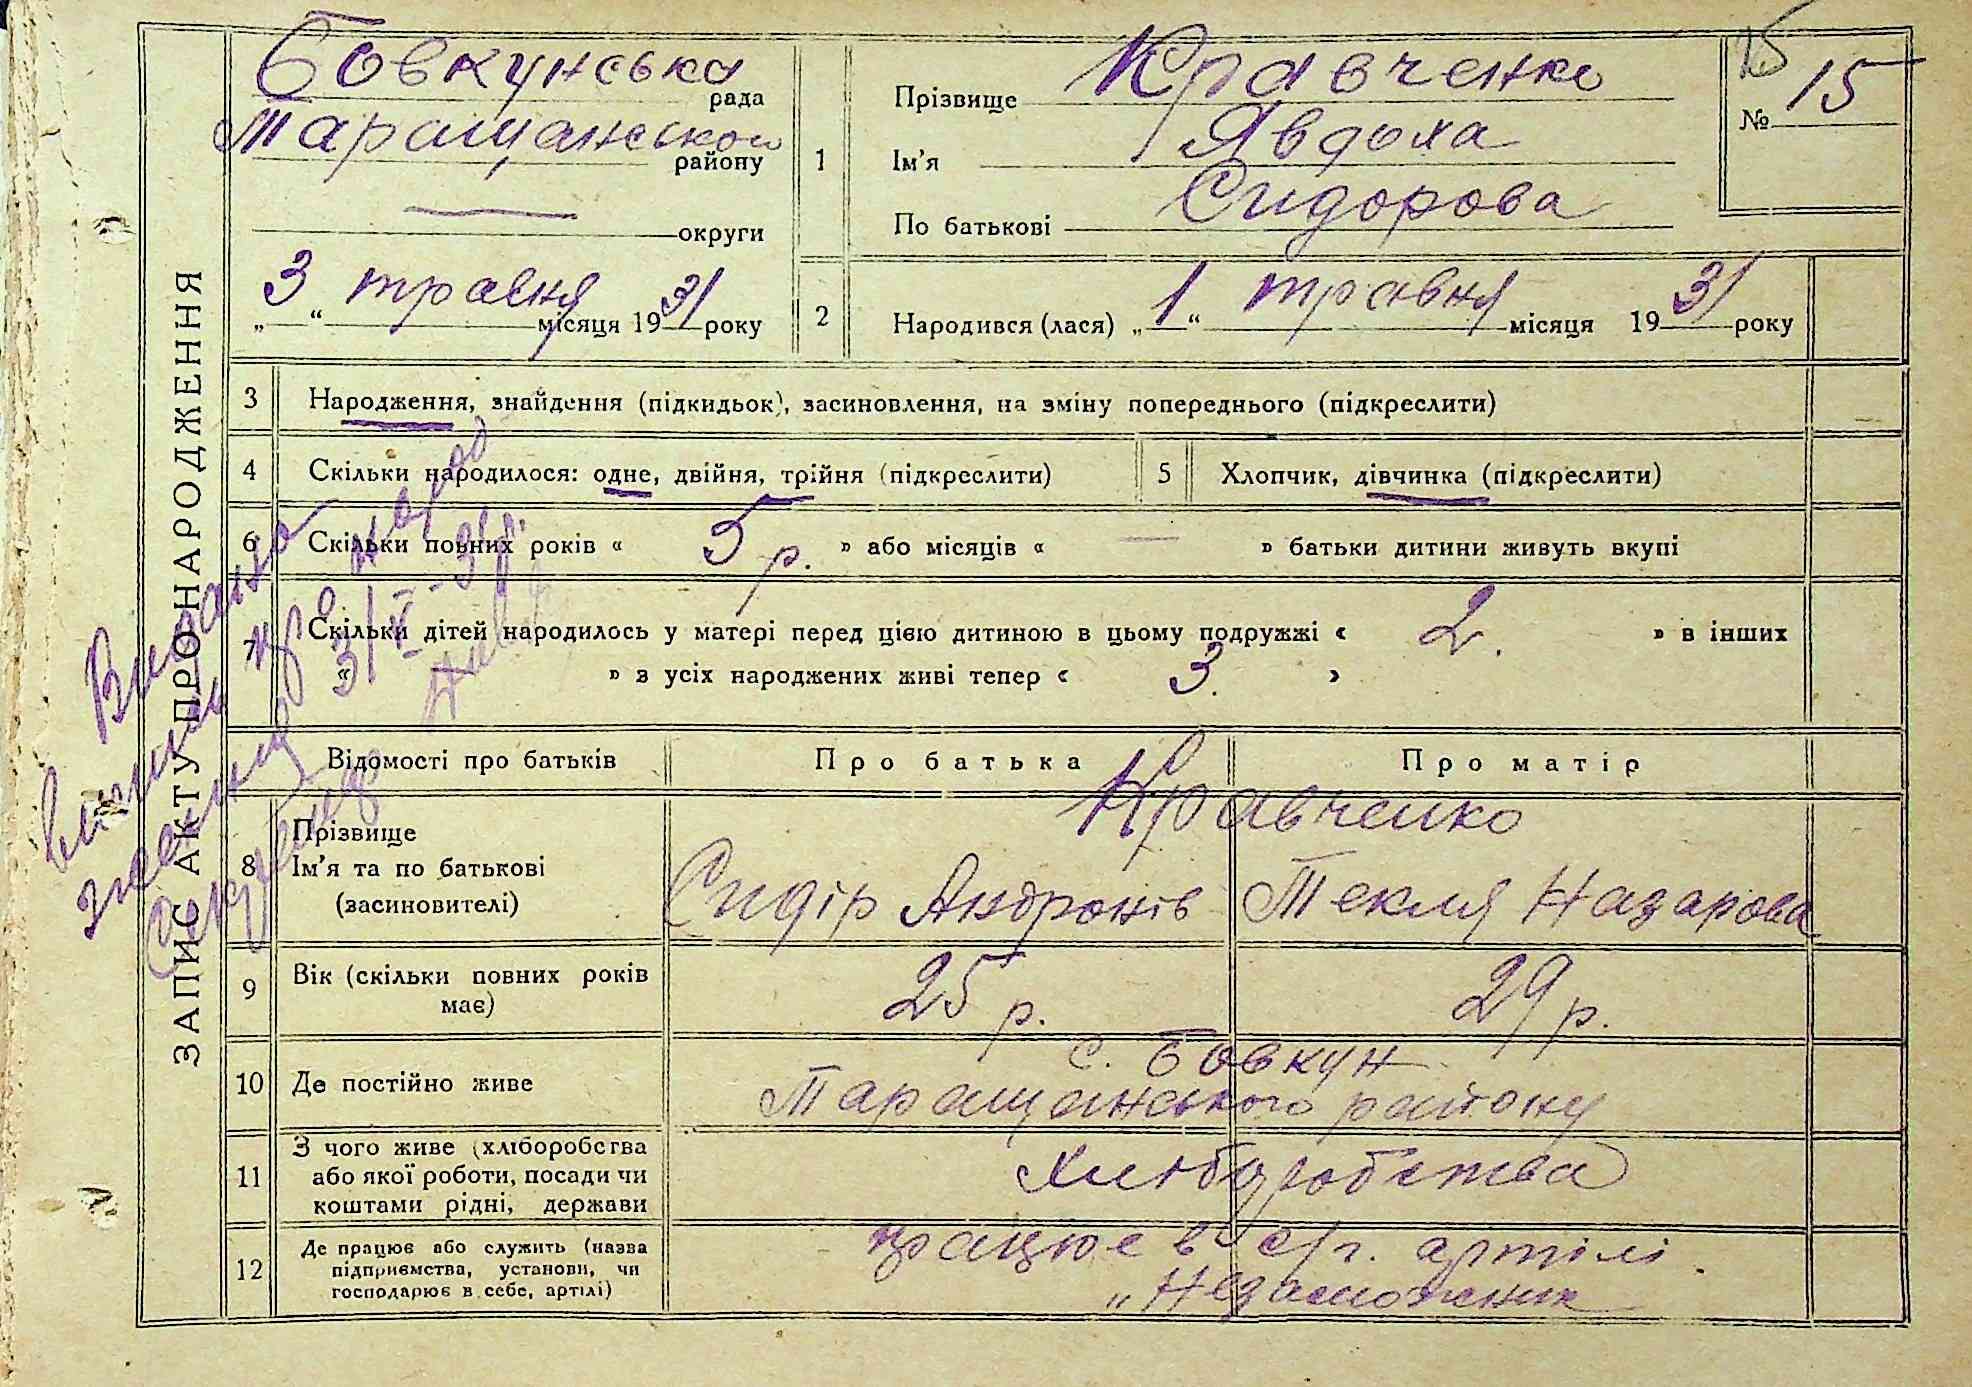 ЗАПИС АКТУ ПРО НАРОДЖЕННЯ
Бовкунська рада
Таращанського району
— округи
„3“ травня місяця 1931 року
1
Прізвище Кравченко
Ім'я Явдоха
По батькові Сидорова
15
№ 15
2
Народився (лася) „1“ травня місяця 1931 року
3 Народження, знайдення (підкидьок), засиновлення, на зміну попереднього (підкреслити)
4 Скільки народилося: одне, двійня, трійня (підкреслити) 5 Хлопчик, дівчинка (підкреслити)
6 Скільки повних років « 5 р. » або місяців « — » батьки дитини живуть вкупі
7 Скільки дітей народилось у матері перед цією дитиною в цьому подружжі « 2. » в інших
« » з усіх народжених живі тепер « 3. »
Видано
виписъ про народ
31/V-31 р.
Секретар
Відомості про батьків Про батька Про матір
8 Прізвище
Ім'я та по батькові
(засиновителі)
Кравченко
Сидір Андронів Текля Назарова
9 Вік (скільки повних років
має)
25 р. 29 р.
10 Де постійно живе
с. Бовкун
Таращанського району
11 З чого живе (хліборобства
або якої роботи, посади чи
коштами рідні, держави
Хліборобства
12 Де працює або служить (назва
підприємства, установи, чи
господарює в себе, артілі)
працює в с/г. артілі
„Незаможник